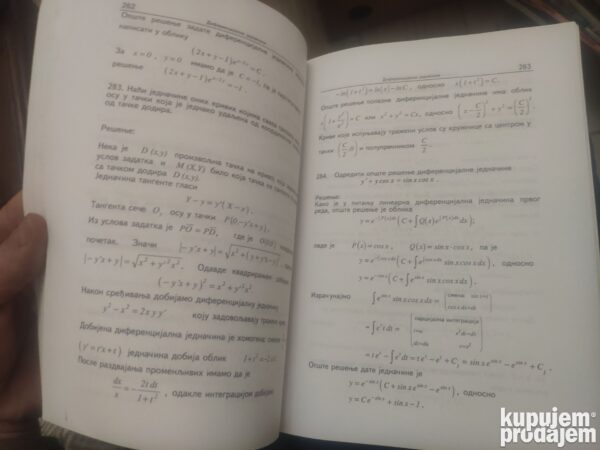 262
Диференцијалне једначине
Опште решење задате диференцијалне једначине
написати у облику
(2x + y − 1)e^{y−2x} = C.
За x = 0, y = 0 имамо да је C = −1, па је
решење (2x + y − 1)e^{y−2x} = −1.
283. Наћи једначине оних кривих којима свака тангента сече
осу у тачки која је једнако удаљена од координатног
од тачке додира.
Решење:
Нека је D(x,y) произвољна тачка на кривој која
услов задатка и M(X,Y) било која тачка на тангенти
са тачком додира D(x,y).
Једначина тангенте гласи
Y − y = y'(X − x).
Тангента сече O_y осу у тачки P(0 − y'x + y).
Из услова задатка је PO = PD, где је O(0,0)
почетак. Значи |−y'x + y| = √(x² + (y + y'x − y)²)
|−y'x + y| = √(x² + y'²x²). Одавде квадрирањем
(−y'x + y)² = x² + y'²x²
Након сређивања добијамо диференцијалну једначину
y² − x² = 2xyy' коју задовољавају тражене криве
Добијена диференцијална једначина је хомогена
(y' = t'x + t) једначина добија облик 1 + t² = −2t
После раздвајања променљивих имамо да је
dx/x = −2tdt/(1 + t²), одакле интеграцијом добијамо
Диференцијалне једначине
263
−ln(1 + t²) = ln(x) − lnC, односно x(1 + t²) = C.
Опште решење полазне диференцијалне једначине има облик
x(1 + y²/x²) = C или x² + y² = Cx, односно (x − C/2)² + y² = (C/2)².
Криве које испуњавају тражени услов су кружнице са центром у
тачки (C/2, 0) и полупречником C/2.
284. Одредити опште решење диференцијалне једначине
y' + y cos x = sin x cos x.
Решење:
Како је у питању линеарна диференцијална једначина првог
реда, опште решење је облика
y = e^{−∫P(x)dx}(C + ∫Q(x)e^{∫P(x)dx}dx),
овде је P(x) = cos x, Q(x) = sin x · cos x, па је
y = e^{−∫cos x dx}(C + ∫e^{∫cos x dx} sin x cos x dx), односно
y = e^{−sin x}(C + ∫e^{sin x} sin x cos x dx).
Израчунајмо ∫e^{sin x} sin x cos x dx = | смена: sin x = t | cos x dx = dt |
= ∫e^t t dt = | парцијална интеграција | t = u e^t dt = dv | dt = du e^t = v |
= te^t − ∫e^t dt = te^t − e^t + C₁ = sin x e^{sin x} − e^{sin x} + C₁.
Опште решење дате једначине је
y = e^{−sin x}(C + sin x e^{sin x} − e^{sin x}), односно
y = Ce^{−sin x} + sin x − 1.
kupujem
prodajem